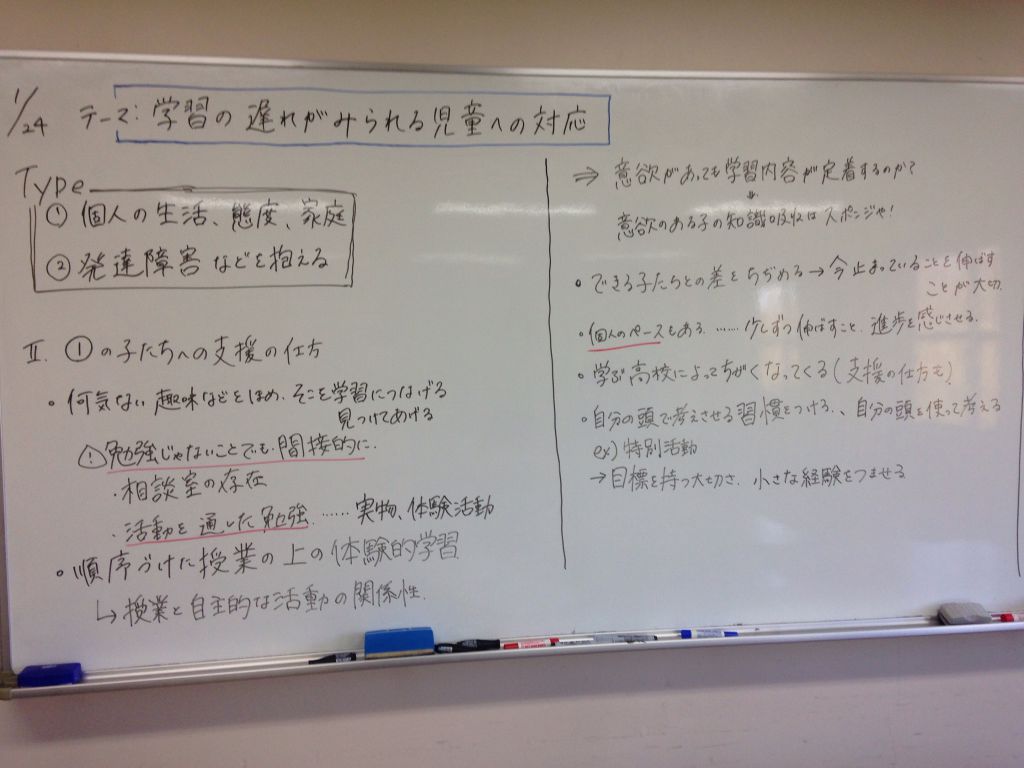 1/24 テーマ：学習の遅れがみられる児童への対応
Type
① 個人の生活、態度、家庭
② 発達障害などを抱える
Ⅱ. ①の子たちへの支援の仕方
・何気ない趣味などをほめ、そこを学習につなげる
見つけてあげる
! 勉強じゃないことでも間接的に.
・相談室の存在
・活動を通した勉強. …… 実物、体験活動
・順序づけた授業の上の体験的学習
↳授業と自主的な活動の関係性.
⇒ 意欲があっても学習内容が定着するのか？
意欲のある子の知識吸収はスポンジや！
・できる子たちとの差をちぢめる → 今止まっていることを伸ばす
ことが大切.
・個人のペースもある. …… 少しずつ伸ばすこと、進歩を感じさせる.
・学ぶ高校によってちがくなってくる(支援の仕方も)
・自分の頭で考えさせる習慣をつける、自分の頭を使って考える
ex) 特別活動
→目標を持つ大切さ. 小さな経験をつませる